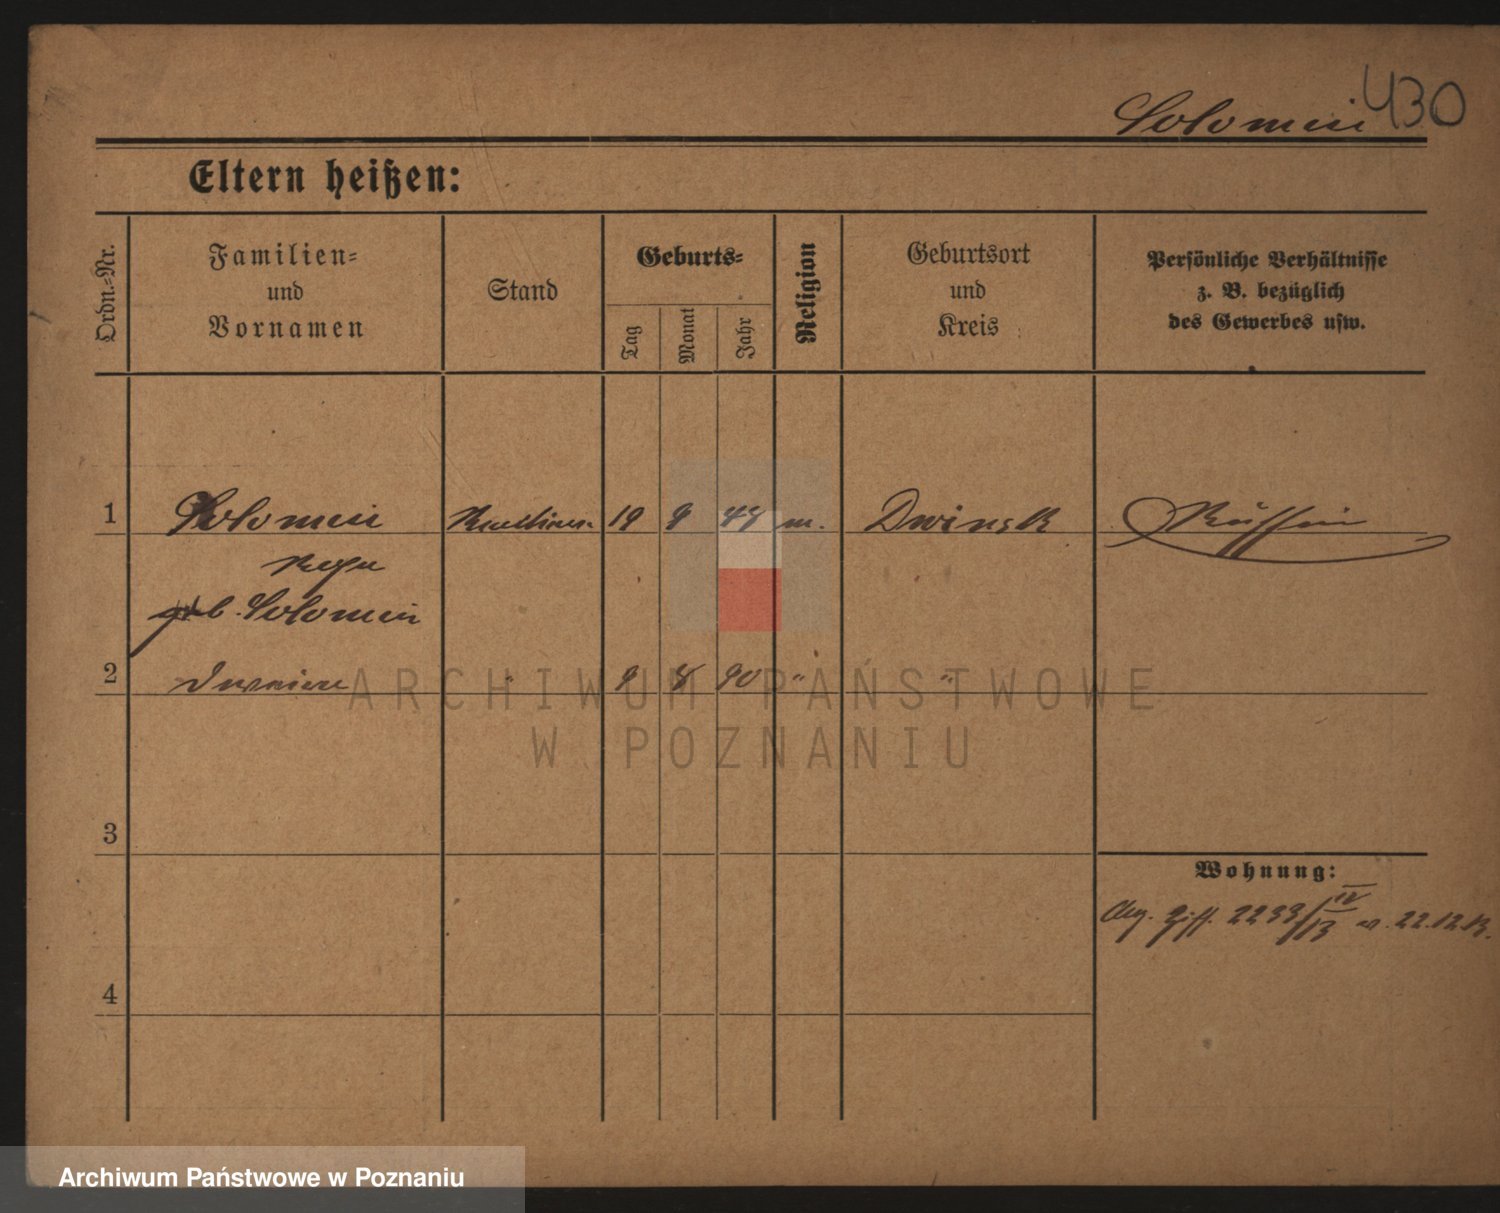 430
Solomin
Eltern heißen:
Ordn.-Nr.
Familien-
und
Vornamen
Stand
Geburts-
Tag
Monat
Jahr
Religion
Geburtsort
und
Kreis
Persönliche Verhältnisse
z. B. bezüglich
des Gewerbes usw.
1 Solomin 19 9 m. Dwinsk
geb. Solomin
2 " 9 8 90 " "
ARCHIWUM PAŃSTWOWE
W POZNANIU
3
Wohnung:
22.12.13.
4
Archiwum Państwowe w Poznaniu